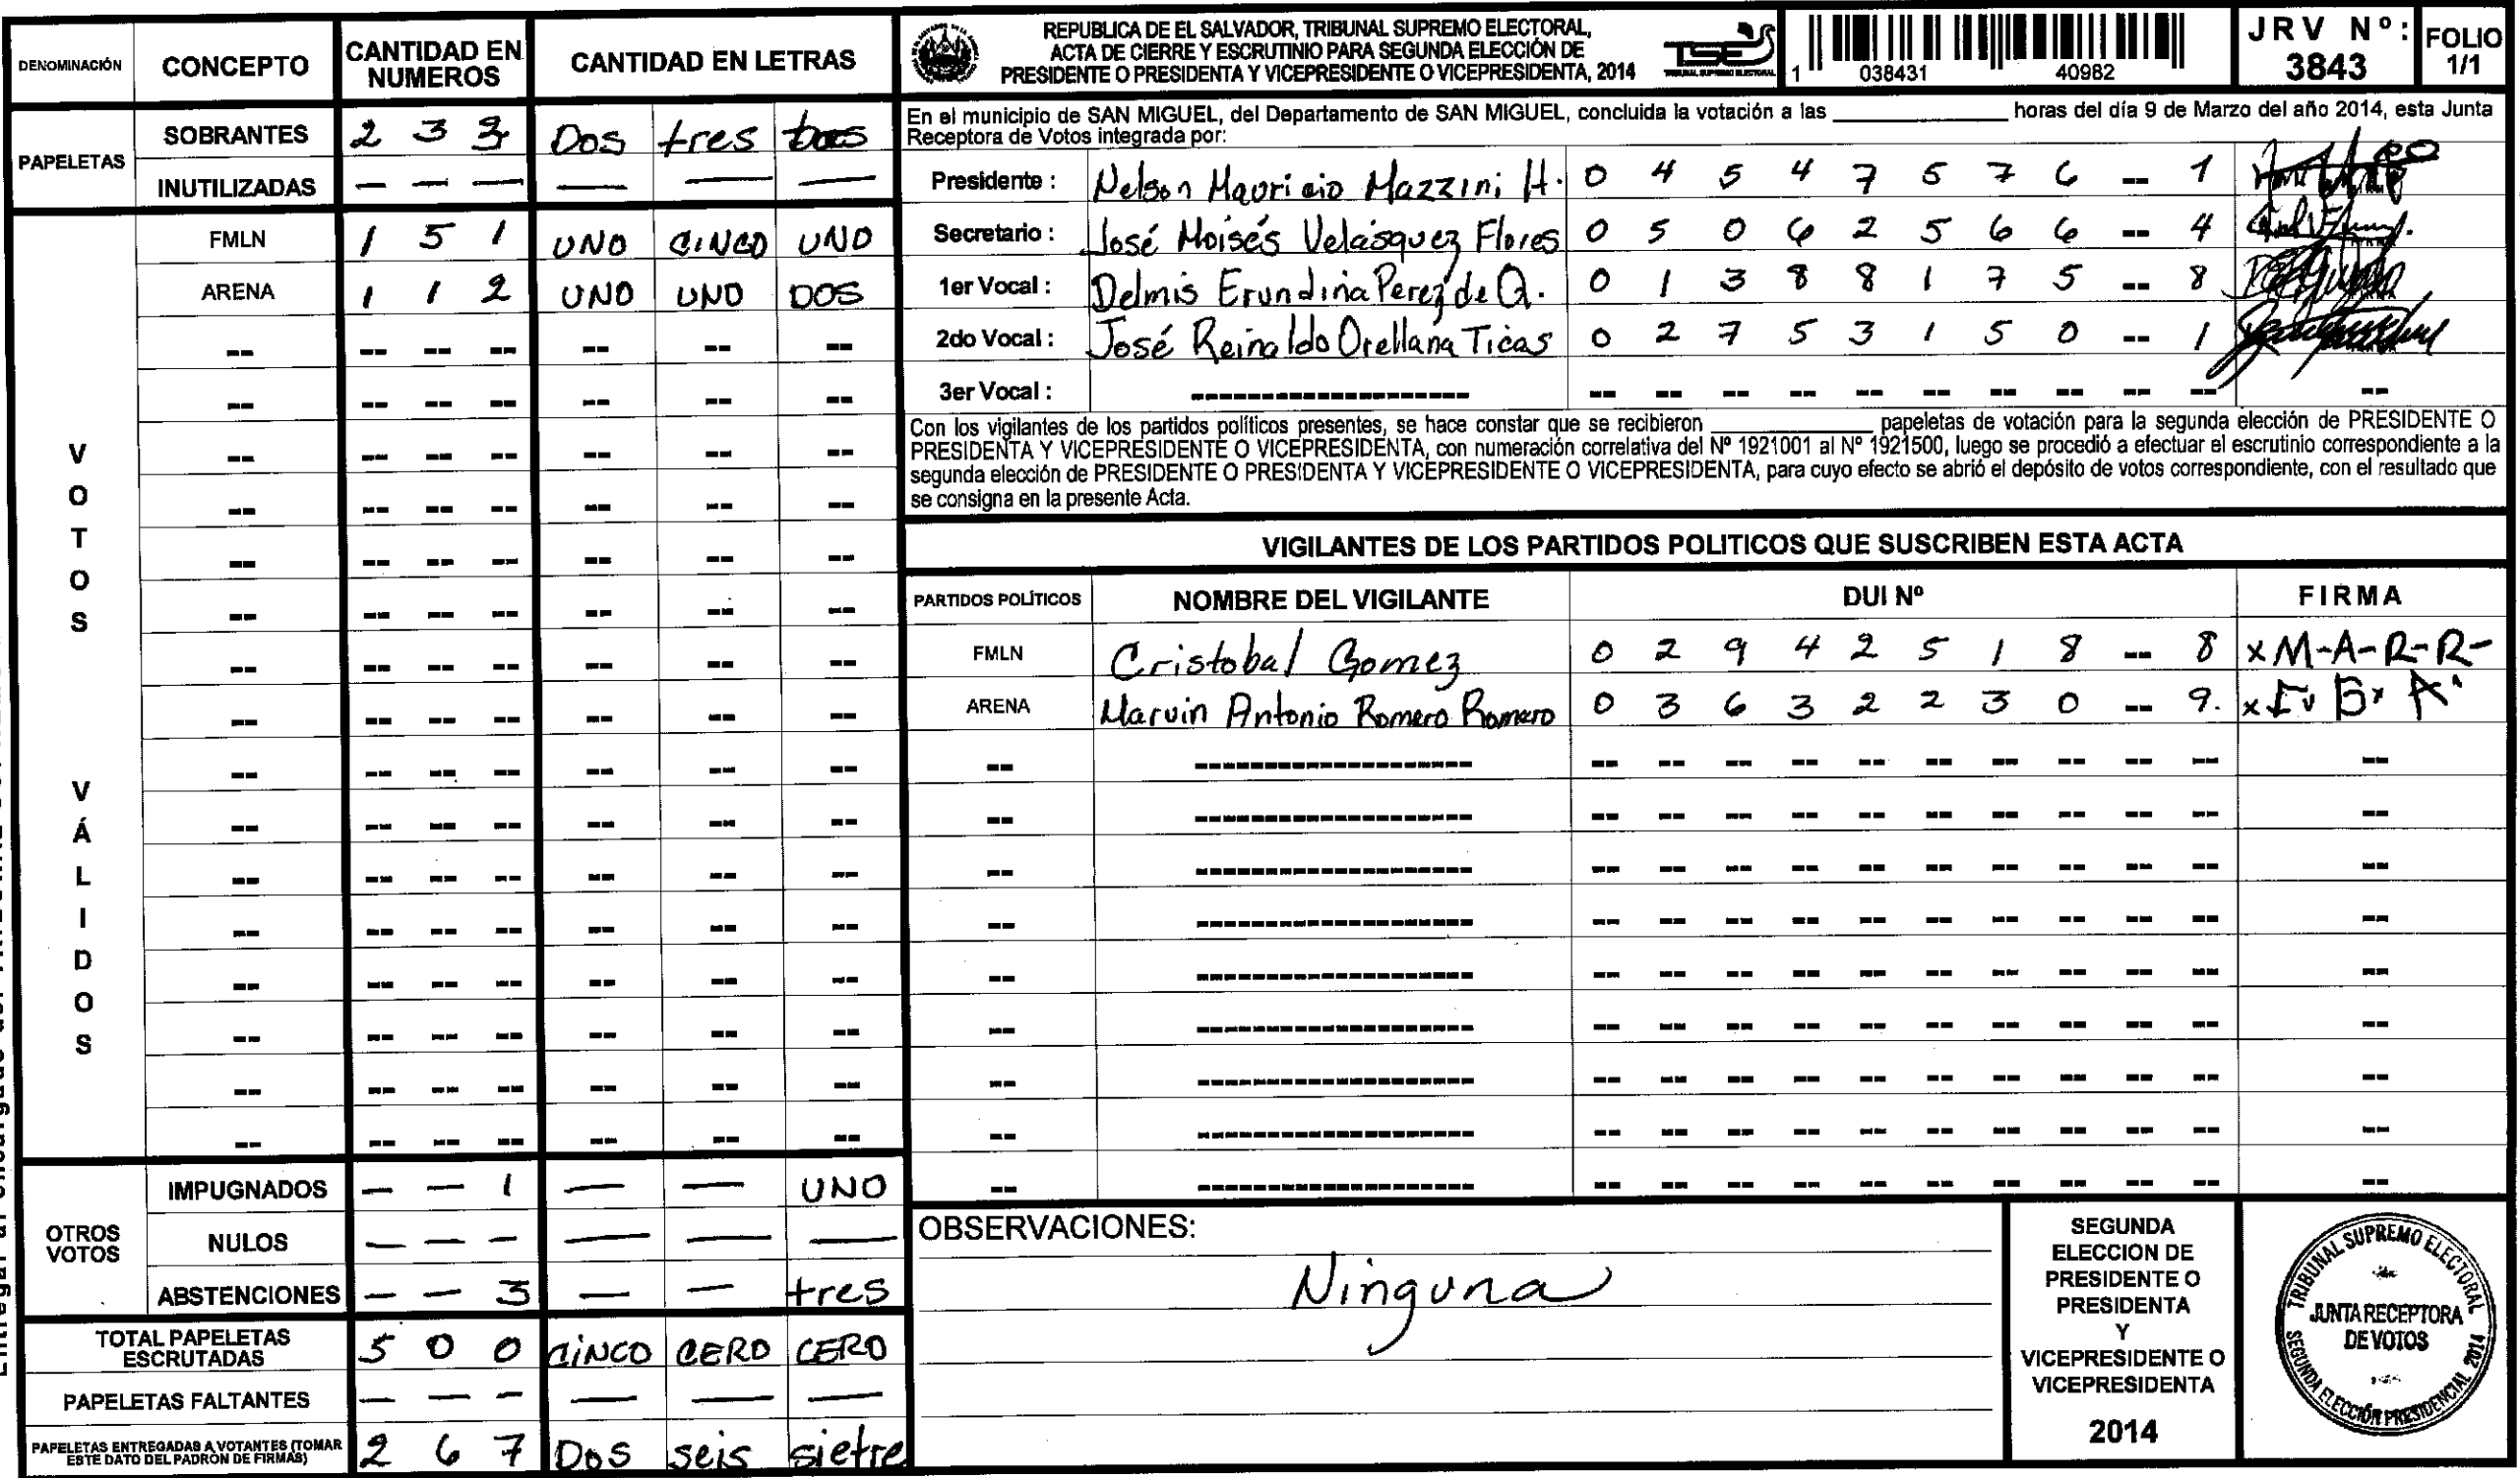 DENOMINACIÓN CONCEPTO CANTIDAD EN NUMEROS CANTIDAD EN LETRAS
PAPELETAS
SOBRANTES 2 3 3 Dos tres
INUTILIZADAS — — — — — —
VOTOS VÁLIDOS
FMLN 1 5 1 UNO CINCO UNO
ARENA 1 1 2 UNO UNO DOS
OTROS VOTOS
IMPUGNADOS — — 1 — — UNO
NULOS — — — — — —
ABSTENCIONES — — 3 — — tres
TOTAL PAPELETAS ESCRUTADAS 5 0 0 CINCO CERO CERO
PAPELETAS FALTANTES — — — — — —
PAPELETAS ENTREGADAS A VOTANTES (TOMAR ESTE DATO DEL PADRON DE FIRMAS) 2 6 7 Dos seis sietre
REPUBLICA DE EL SALVADOR, TRIBUNAL SUPREMO ELECTORAL,
ACTA DE CIERRE Y ESCRUTINIO PARA SEGUNDA ELECCIÓN DE
PRESIDENTE O PRESIDENTA Y VICEPRESIDENTE O VICEPRESIDENTA, 2014
TSE
TRIBUNAL SUPREMO ELECTORAL
1 038431 40982
JRV Nº: 3843
FOLIO 1/1
En el municipio de SAN MIGUEL, del Departamento de SAN MIGUEL, concluida la votación a las ____________ horas del día 9 de Marzo del año 2014, esta Junta
Receptora de Votos integrada por:
Presidente : Nelson Mauricio Mazzini H. 0 4 5 4 7 5 7 6 -- 1
Secretario : José Moisés Velásquez Flores 0 5 0 6 2 5 6 6 -- 4
1er Vocal : Delmis Erundina Perez de Q. 0 1 3 8 8 1 7 5 -- 8
2do Vocal : José Reinaldo Orellana Ticas 0 2 7 5 3 1 5 0 -- 1
3er Vocal :
Con los vigilantes de los partidos políticos presentes, se hace constar que se recibieron ____________ papeletas de votación para la segunda elección de PRESIDENTE O
PRESIDENTA Y VICEPRESIDENTE O VICEPRESIDENTA, con numeración correlativa del Nº 1921001 al Nº 1921500, luego se procedió a efectuar el escrutinio correspondiente a la
segunda elección de PRESIDENTE O PRESIDENTA Y VICEPRESIDENTE O VICEPRESIDENTA, para cuyo efecto se abrió el depósito de votos correspondiente, con el resultado que
se consigna en la presente Acta.
VIGILANTES DE LOS PARTIDOS POLITICOS QUE SUSCRIBEN ESTA ACTA
PARTIDOS POLÍTICOS NOMBRE DEL VIGILANTE DUI Nº FIRMA
FMLN Cristobal Gomez 0 2 9 4 2 5 1 8 -- 8 x M-A-R-R-
ARENA Marvin Antonio Romero Romero 0 3 6 3 2 2 3 0 -- 9.
OBSERVACIONES:
Ninguna
SEGUNDA
ELECCION DE
PRESIDENTE O
PRESIDENTA
Y
VICEPRESIDENTE O
VICEPRESIDENTA
2014
TRIBUNAL SUPREMO ELECTORAL
JUNTA RECEPTORA
DE VOTOS
SEGUNDA ELECCIÓN PRESIDENCIAL 2014